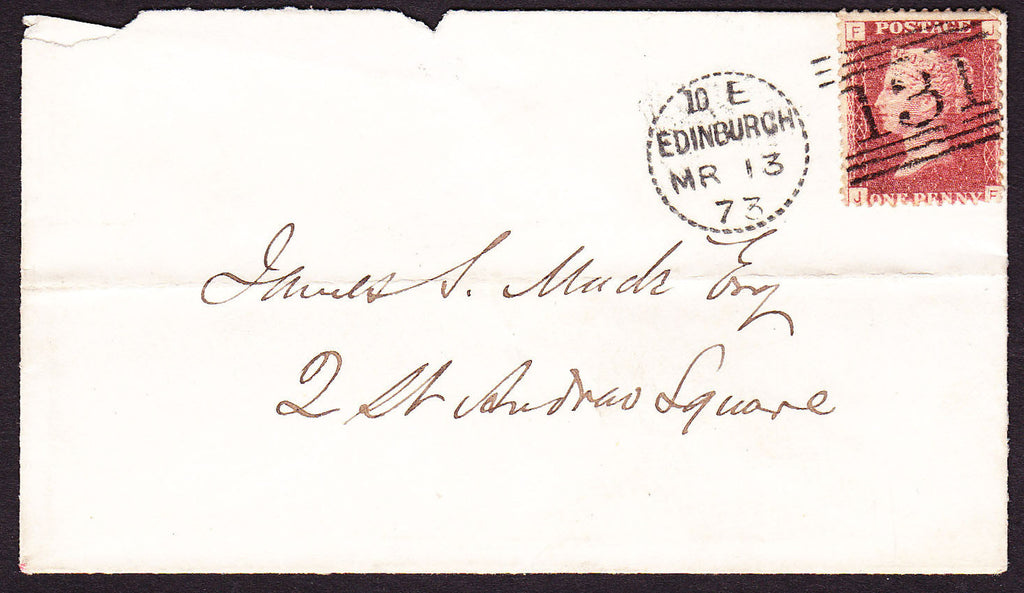 F POSTAGE J
131
10 E
EDINBURGH
MR 13
73
J ONE PENNY F
James S. Mack Esq
2 St Andrew Square